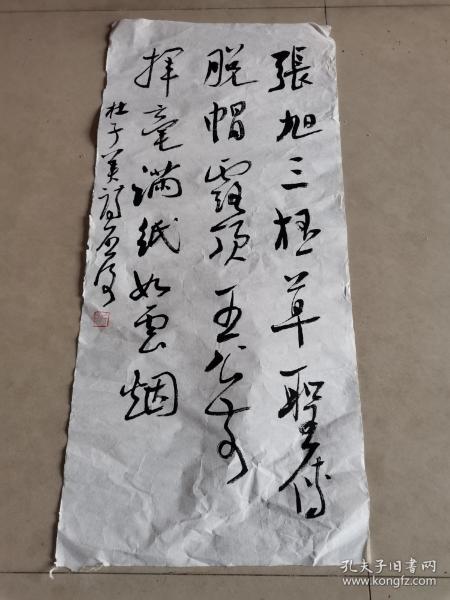 張旭三杯草聖傳
脱帽露頂王公前
揮毫满紙如雲烟
杜子美詩
孔夫子旧书网
www.kongfz.com